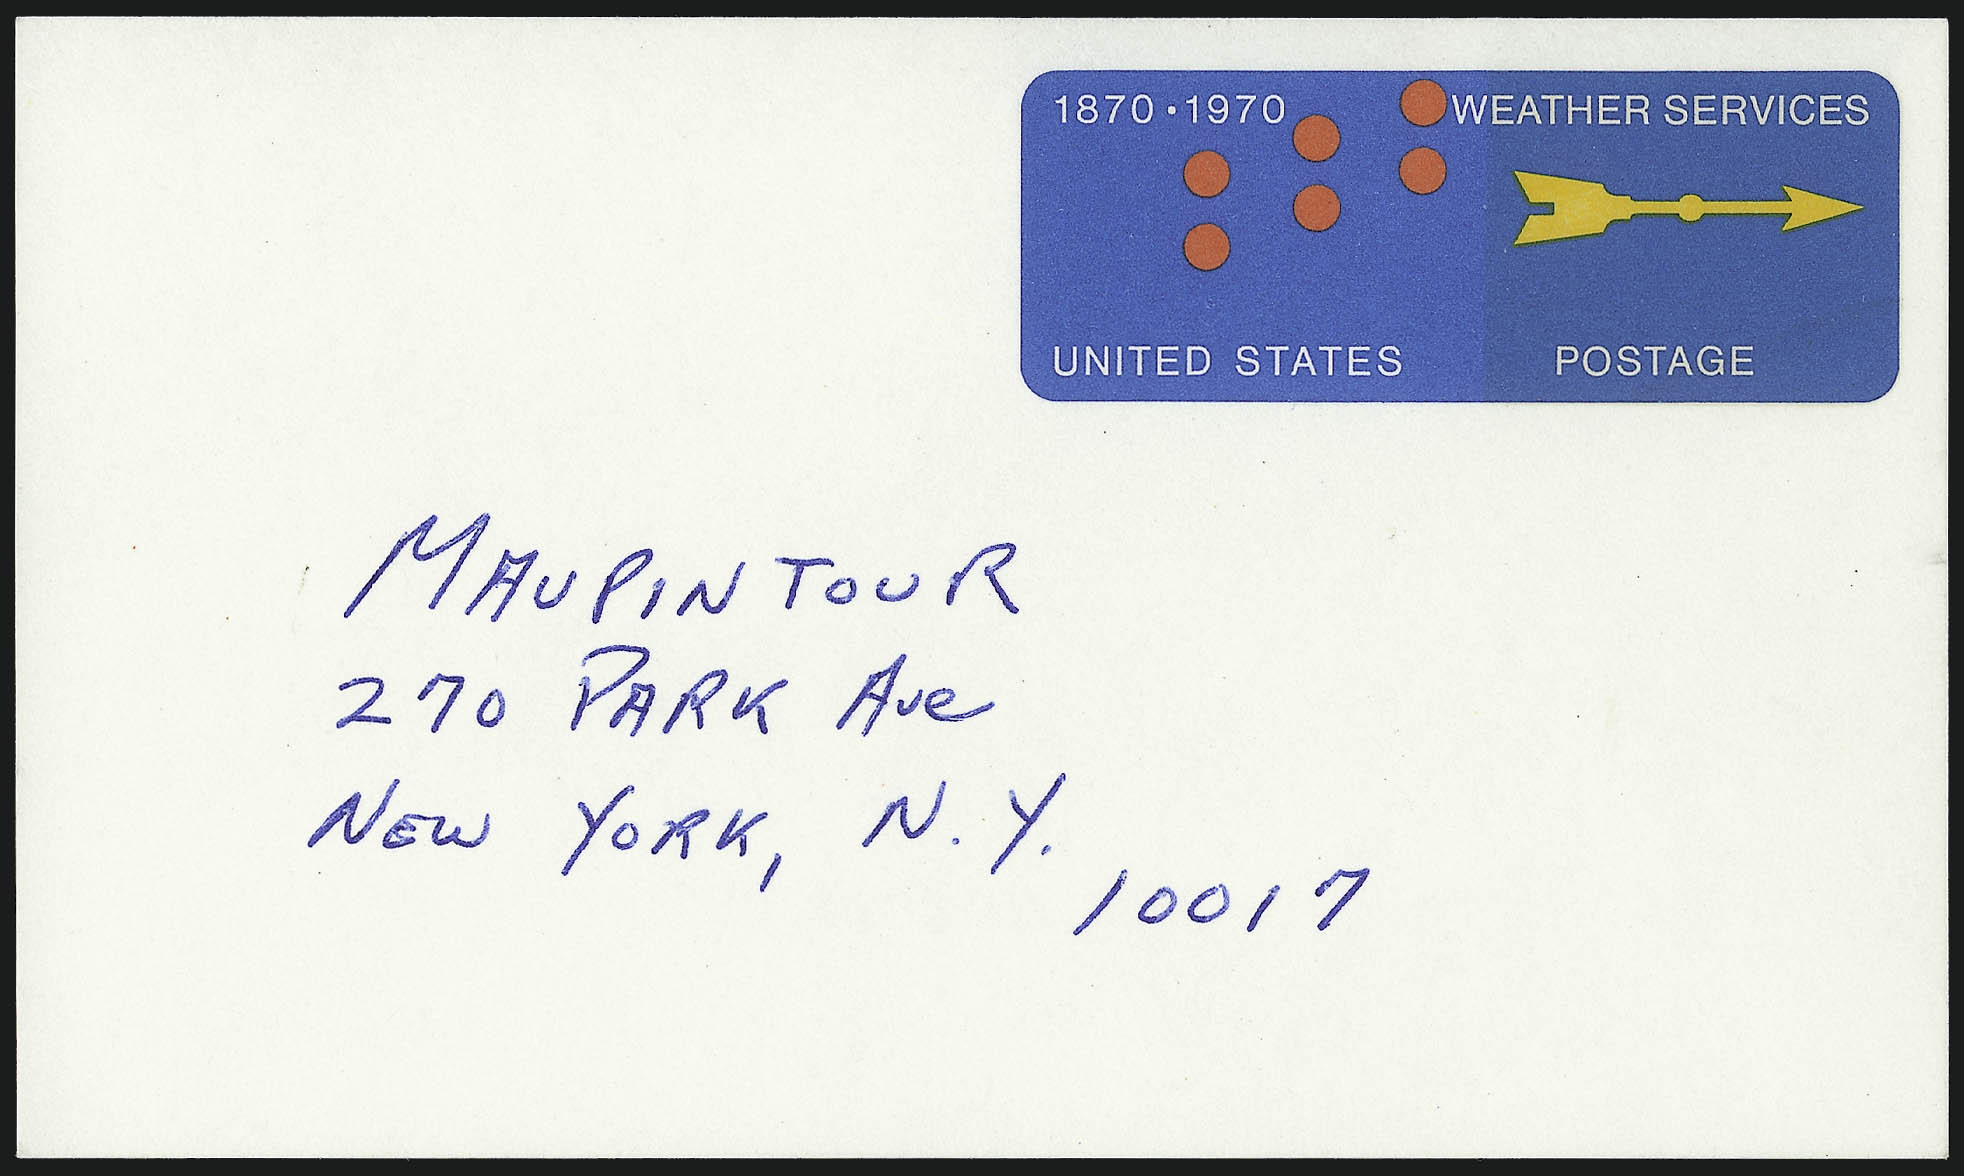 1870 • 1970 WEATHER SERVICES
UNITED STATES POSTAGE
MAUPINTOUR
270 PARK Ave
NEW YORK, N.Y.
10017